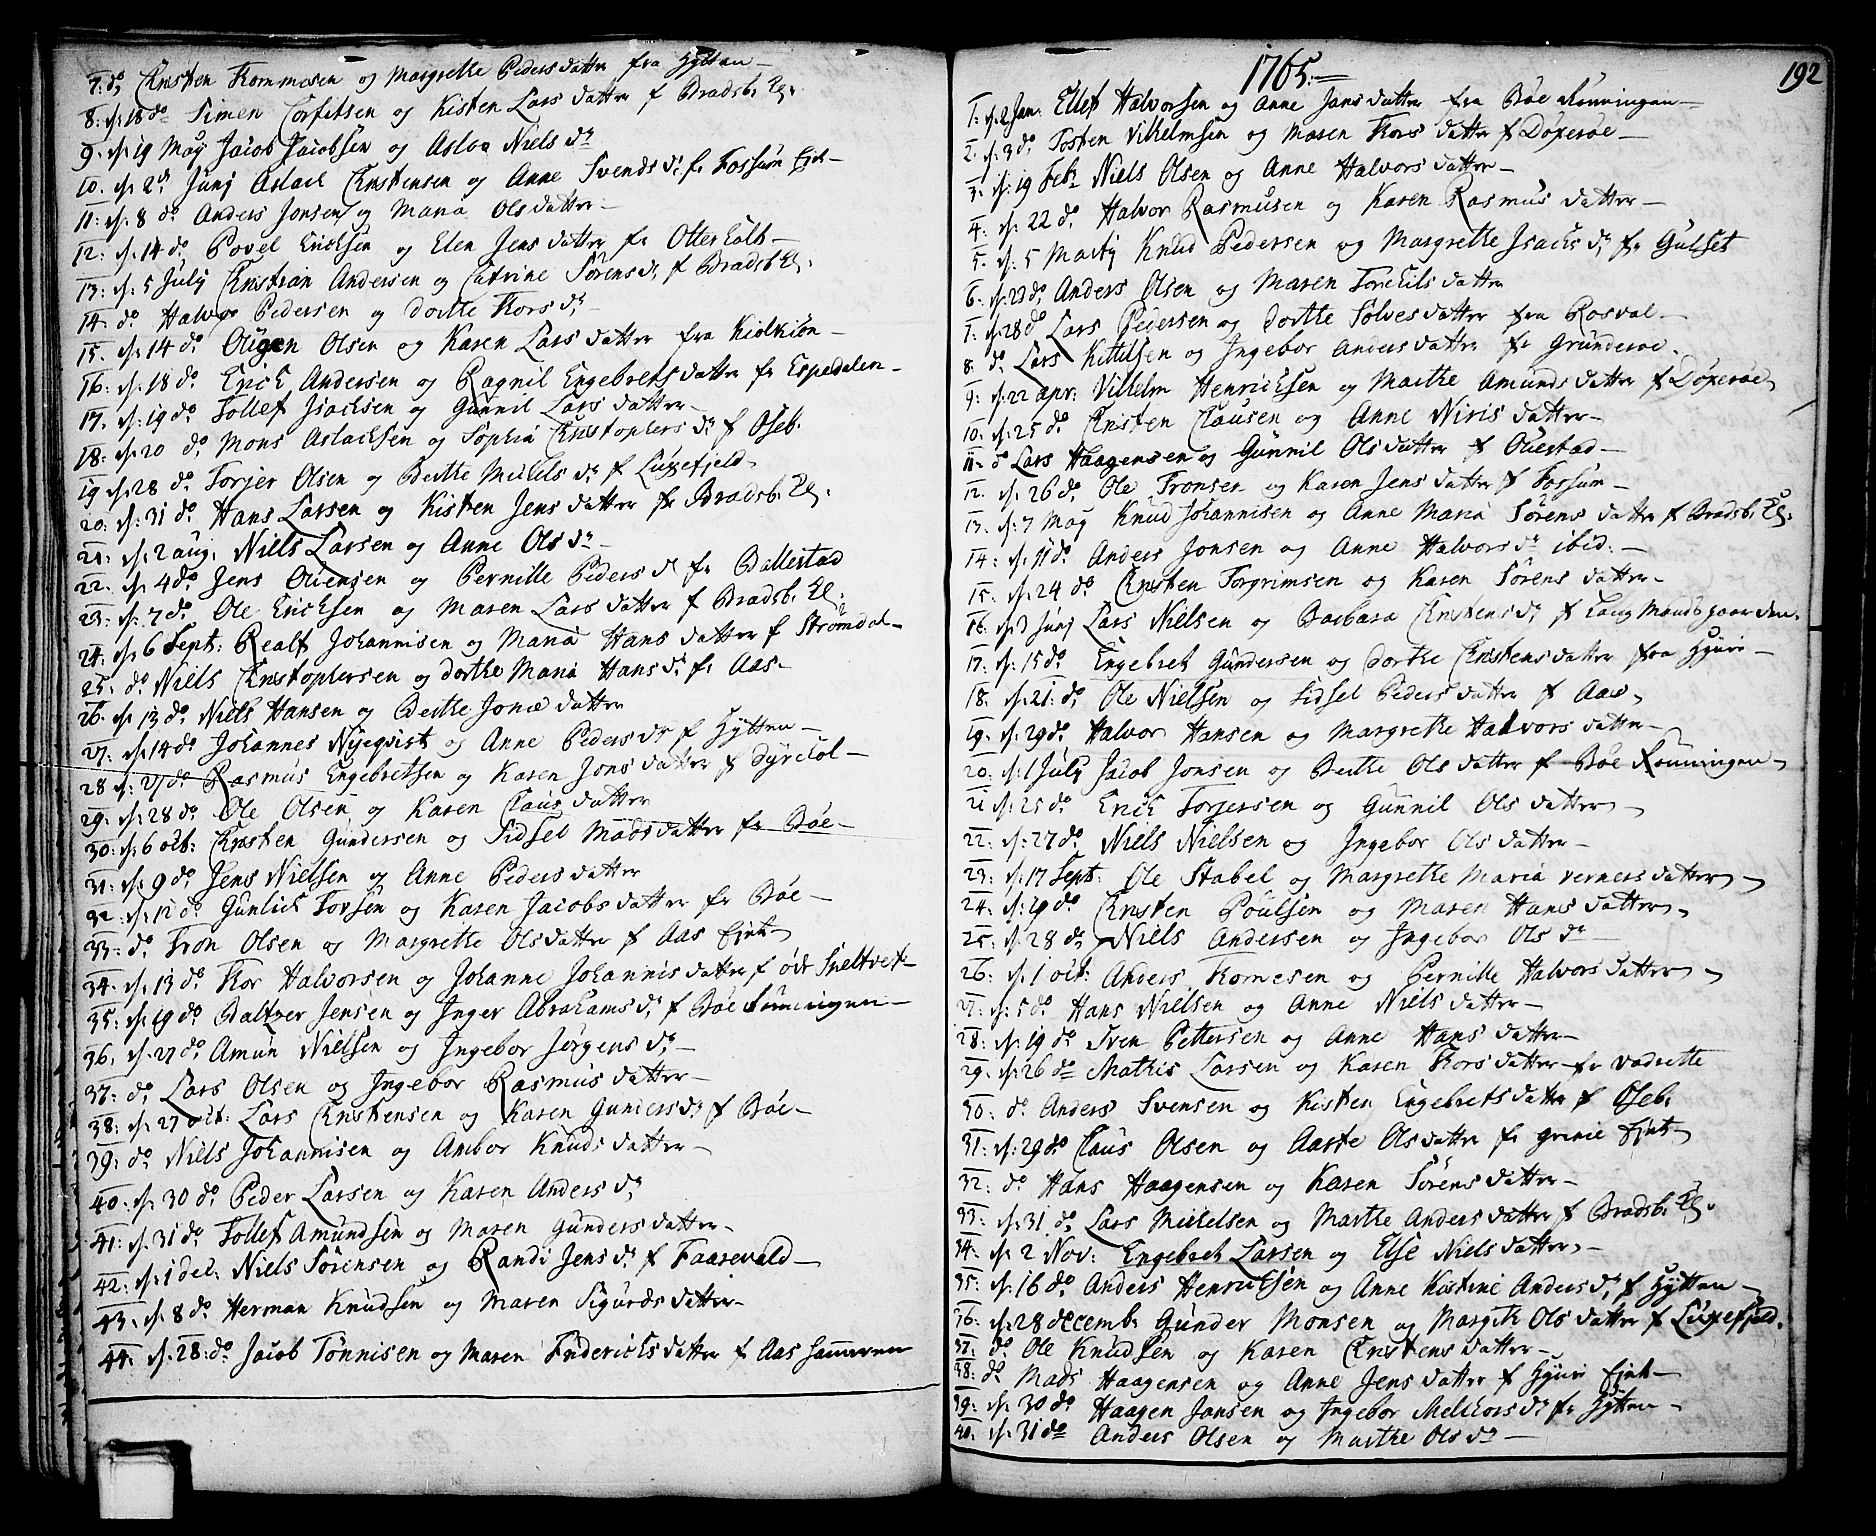 7: dº Christen Thommesen og Margrethe Pedersdatter fra Hyttan
8: d: 18 dº Simen Corfitsen og Kisten Larsdatter f Bradsb. Cl:
9: d: 19 May Jacob Jacobsen og Aslou Niels dr
10. d: 2 Junj Aslach Christensen og Anne Svends dr fr Fossum Ejet
11: d: 8 dº Anders Jonsen og Maria Olsdatter
12: d: 14 dº Povel Erichsen og Elen Jensdatter fr Otterholt
13: d: 5 July Christian Andersen og Catrine Sörens dr f Bradsb. Cl:
14: dº Halvor Pedersen og Dorthe Thors dr
15. d: 14 dº Olügen Olsen og Karen Larsdatter fra Kiölkiön
16: d: 18 dº Erich Andersen og Ragnil Engebretsdatter fr Espedalen
17. d: 19 dº Tollef Isachsen og Gunnil Larsdatter
18: d: 20 dº Mons Aslachsen og Sophia Christophers dr f Oseb:
19 d: 28 dº Torjer Olsen og Berthe Michels dr f Luxefjeld
20: d: 31 dº Hans Larsen og Kisten Jensdatter fr Bradsb. Cl:
21: d: 2 aug: Niels Larsen og Anne Ols dr
22: d: 4 dº Jens Ovensen og Pernille Peders dr fr Ballestad
23: d: 7 dº Ole Erichsen og Maren Larsdatter f Bradsb. Cl:
24: d: 6 Sept: Realf Johannisen og Maria Hansdatter f Strömdal
25: dº Niels Christophersen og Dorthe Maria Hans dr fr Aas
26: d: 13 dº Niels Hansen og Berthe Jonædatter
27: d: 14 dº Johannes Nyeqvist og Anne Peders dr f Hyttan
28 d: 27 dº Rasmus Engebretsen og Karen Jonsdatter f Dyrcol
29: d: 28 dº Ole Olsen og Karen Clausdatter
30: d: 6 oct: Christen Gundersen og Sidsel Madsdatter fr Böe
31: d: 9 dº Jens Nielsen og Anne Pedersdatter
32: d: 12 dº Gunlich Tovsen og Karen Jacobsdatter fr Böe
33: dº Tron Olsen og Margrethe Olsdatter f Aas Ejet
34: d: 13 dº Thor Halvorsen og Johanne Johannisdatter f öde Sneltvet
35: d: 19 dº Baltzer Jensen og Inger Abrahams dr f Böe Rönningen
36: d: 27 dº Amun Nielsen og Ingebor Jörgens dr
37: dº Lars Olsen og Ingebor Rasmusdatter
38: d: 27 oct: Lars Christensen og Karen Gunders dr f Böe
39: dº Niels Johannisen og Ambor Knudsdatter
40: d: 30 dº Peder Larsen og Karen Anders dr
41: d: 31 dº Tollef Amundsen og Maren Gundersdatter
42: d: 1 dec: Niels Sörensen og Randi Jens dr f Faarevald
43: d: 8 dº Herman Knudsen og Maren Sigurdsdatter
44: d: 28: dº Jacob Tönnisen og Maren Fridericksdatter f Aas Hammeren
1765:
192
1: d: 2 Jan: Ellef Halvorsen og Anne Jansdatter fra Böe Rönningen
2: d: 3 dº Tosten Vilhelmsen og Maren Thorsdatter f Döxeröe
3: d: 19 Feb Niels Olsen og Anne Halvorsdatter
4: d: 22 dº Halvor Rasmusen og Karen Rasmusdatter
5: d: 5 Martj Knud Pedersen og Margrethe Isachs dr fr Gulset
6: d: 23 dº Anders Olsen og Maren Torchilsdatter
7: d: 28 dº Lars Pedersen og Dorthe Solvesdatter fra Rosval
8: dº Lars Kittilsen og Ingebor Andersdatter fr Grunderoe
9: d: 22 apr: Vilhelm Henrichsen og Marthe Amundsdatter f Döxeröe
10: d: 25 dº Christen Clausen og Anne Nirisdatter
11: dº Lars Haagensen og Gunnil Olsdatter f Ouestad
12. d: 26 dº Ole Tronsen og Karen Jensdatter f Fossum
13. d: 7 May Knud Johannisen og Anne Maria Sörensdatter f Bradsb. Cl:
14: d: 11 dº Anders Jonsen og Anne Halvors dr ibid:
15: d: 24 dº Christen Torgrimsen og Karen Sörensdatter
16. d: 3 Junj Lars Nielsen og Barbara Christens dr f Laug Mandsgaarden
17. d: 15 dº Engebret Gundersen og Dorthe Christensdatter fra Hyuri
18. d: 21: dº Ole Nielsen og Sidsel Pedersdatter f Aas
19. d: 29 dº Halvor Hansen og Margrethe Halvorsdatter
20: d: 1 July Jacob Jonsen og Berthe Olsdatter f Böe Rönningen
21 d: 25 dº Erick Torjersen og Gunnil Olsdatter
22: d: 27 dº Niels Nielsen og Ingebor Olsdatter
23: d: 17 Sept: Ole Stabel og Margrethe Maria Vernersdatter
24: d: 19 dº Christen Poulsen og Maren Hansdatter
25: d: 28 dº Niels Andersen og Ingebor Ols dr
26: d: 1 oct: Anders Thomesen og Pernille Halvorsdatter
27: d: 5 dº Hans Nielsen og Anne Nielsdatter
28: d: 19 dº Sven Pettersen og Anne Hansdatter
29: d: 26 dº Mathis Larsen og Karen Thorsdatter fr Vadrette
30: dº Anders Svensen og Kisten Engebretsdatter f Oseb:
31: d: 29 dº Claus Olsen og Aaste Olsdatter fr Grinie Ejet
32: dº Hans Haagensen og Karen Sörensdatter
33: d: 31 dº Lars Michelsen og Marthe Andersdatter f Bradsb. Cl:
34. d: 2 Nov: Engebret Larsen og Else Nielsdatter
35: d: 16 dº Anders Henrichsen og Anne Kistine Anders dr f Hyttan
36: d: 28 decemb: Gunder Monsen og Margith Olsdatter f Luxefjeld
37: dº Ole Knudsen og Karen Christensdatter
38: dº Mads Haagensen og Anne Jensdatter f Hyuri Ejet
39: d: 30 dº Haagen Jansen og Ingebor Melchors dr fr Hyttan
40: d: 31 dº Anders Olsen og Marthe Ols dr